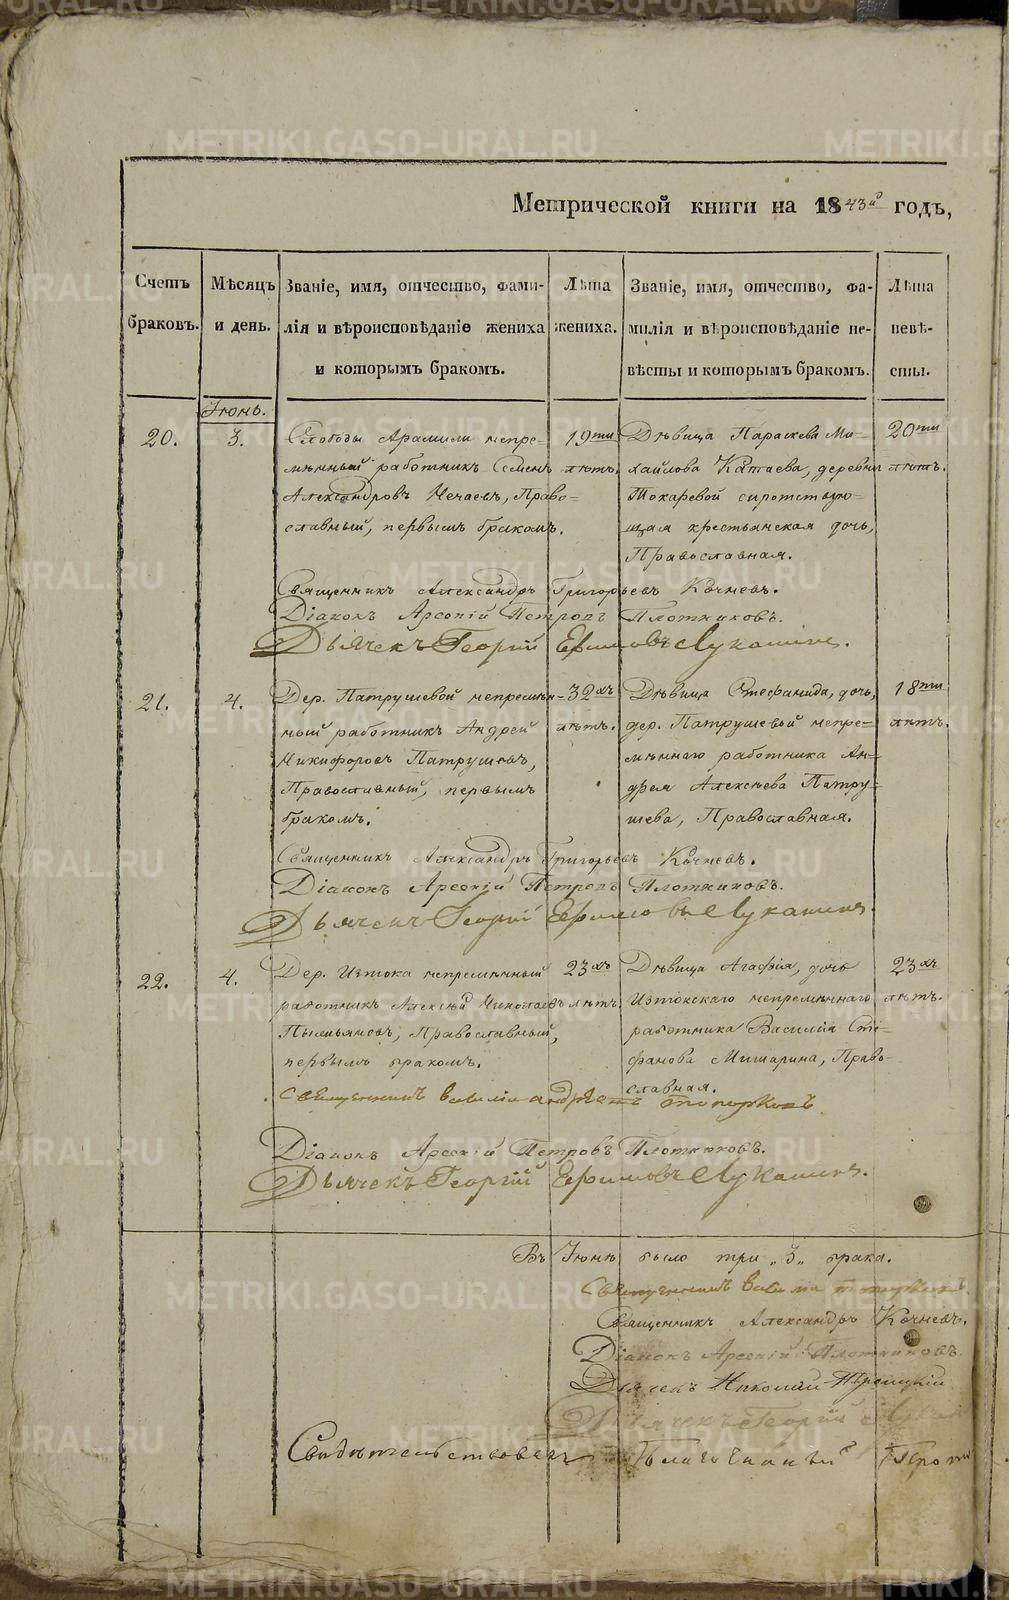 Метрической книги на 1843й годъ,
Счетъ браковъ.
Мѣсяцъ и день.
Званіе, имя, отчество, фами-
лія и вѣроисповѣданіе жениха
и которымъ бракомъ.
Лѣта
жениха.
Званіе, имя, отчество, фа-
милія и вѣроисповѣданіе не-
вѣсты и которымъ бракомъ.
Лѣта
невѣ-
сты.
Іюнь.
20.
3.
Слободы Арамили непре-
мѣнный работникъ Семенъ
Александровъ Нечаевъ, Право-
славный, первымъ бракомъ.
19ти
лѣтъ.
Дѣвица Параскева Ми-
хайлова Катаева, деревни
Токаревой сиротствую-
щая крестьянская дочь,
Православная.
20ти
лѣтъ.
Священникъ Александръ Григорьевъ Кочневъ.
Діаконъ Арсеній Петровъ Плотниковъ.
Дьячекъ Георгій Ефимовъ Лукашинъ.
21.
4.
Дер. Патрушевой непремѣн-
ный работникъ Андрей
Никифоровъ Патрушевъ,
Православный, первымъ
бракомъ.
32хъ
лѣтъ.
Дѣвица Стефанида, дочь,
дер. Патрушевой непре-
мѣннаго работника Ан-
дрея Алексѣева Патру-
шева, Православная.
18ти
лѣтъ.
Священникъ Александръ Григорьевъ Кочневъ.
Діаконъ Арсеній Петровъ Плотниковъ.
Дьячекъ Георгій Ефимовъ Лукашинъ.
22.
4.
Дер. Изтока непремѣнный
работникъ Алексѣй Николаевъ
Пыльянковъ, Православный,
первымъ бракомъ.
23хъ
лѣтъ.
Дѣвица Агафія, дочь
Изтокскаго непремѣннаго
работника Василія Сте-
фанова Мишарина, Право-
славная.
23хъ
лѣтъ.
Священникъ Андреевъ Топорковъ
Діаконъ Арсеній Петровъ Плотниковъ.
Дьячекъ Георгій Ефимовъ Лукашинъ.
Въ Іюнѣ было три „3„ брака.
Священникъ Топорковъ.
Священникъ Александръ Кочневъ.
Діаконъ Арсеній Плотниковъ.
Дьячекъ Николай Троицкій
Дьячекъ Георгій
Свидѣтельствовалъ Благочинный
METRIKI.GASO-URAL.RU